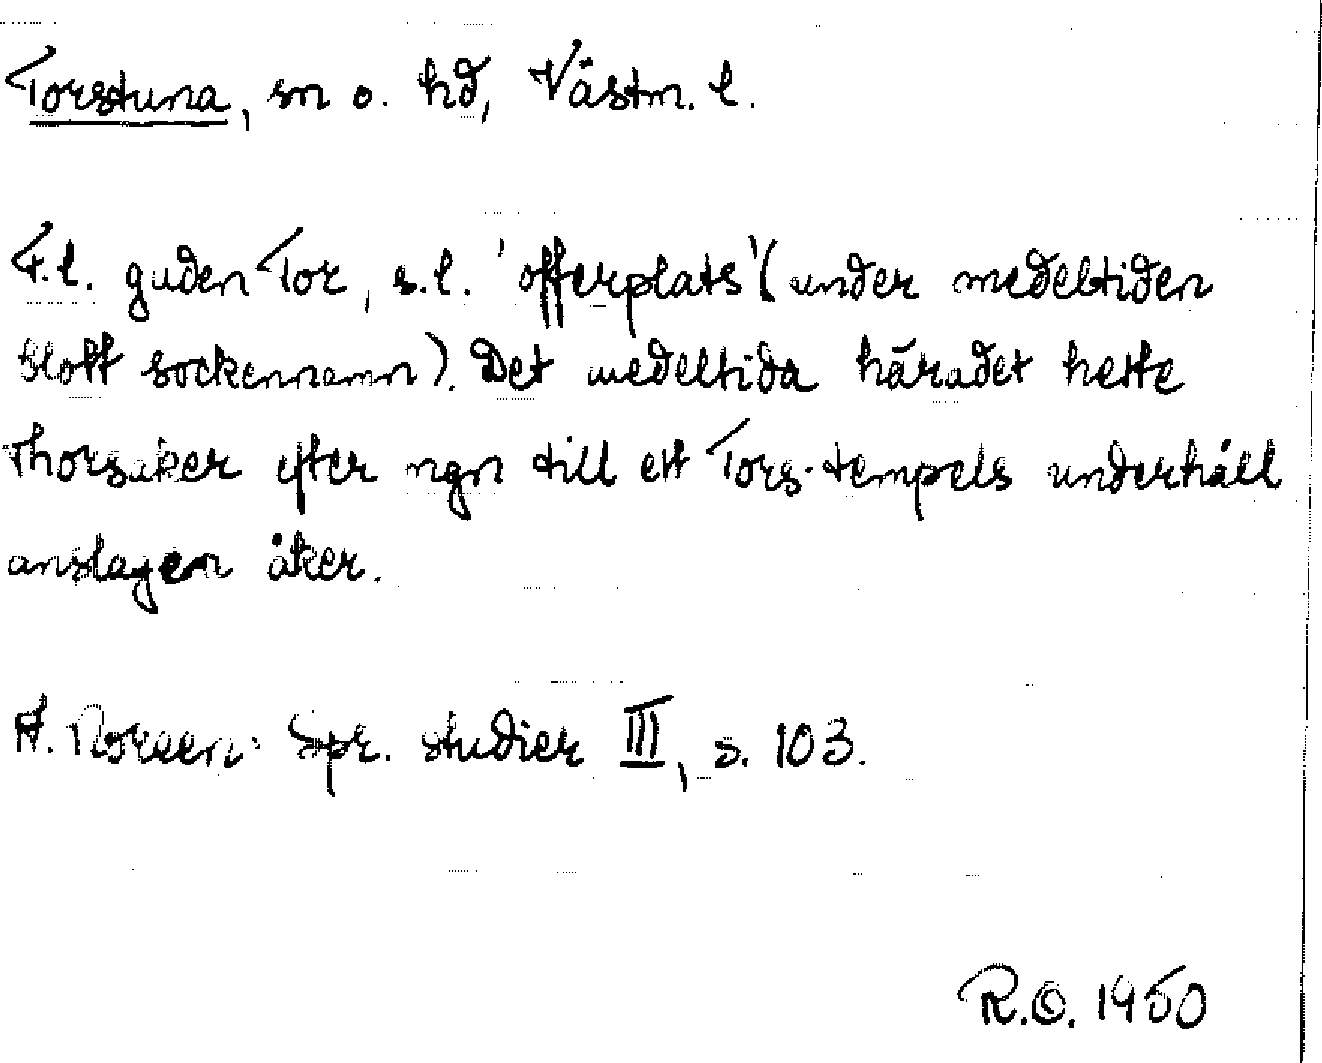 Torstuna, sn o. hd, Västm. l.
F.l. guden Tor, s.l. 'offerplats' (under medeltiden
blott sockennamn). Det medeltida häradet hette
Thorsaker efter ngn till ett Tors-tempels underhåll
anslagen åker.
A. Noreen: Spr. studier III, s. 103.
R.O. 1950